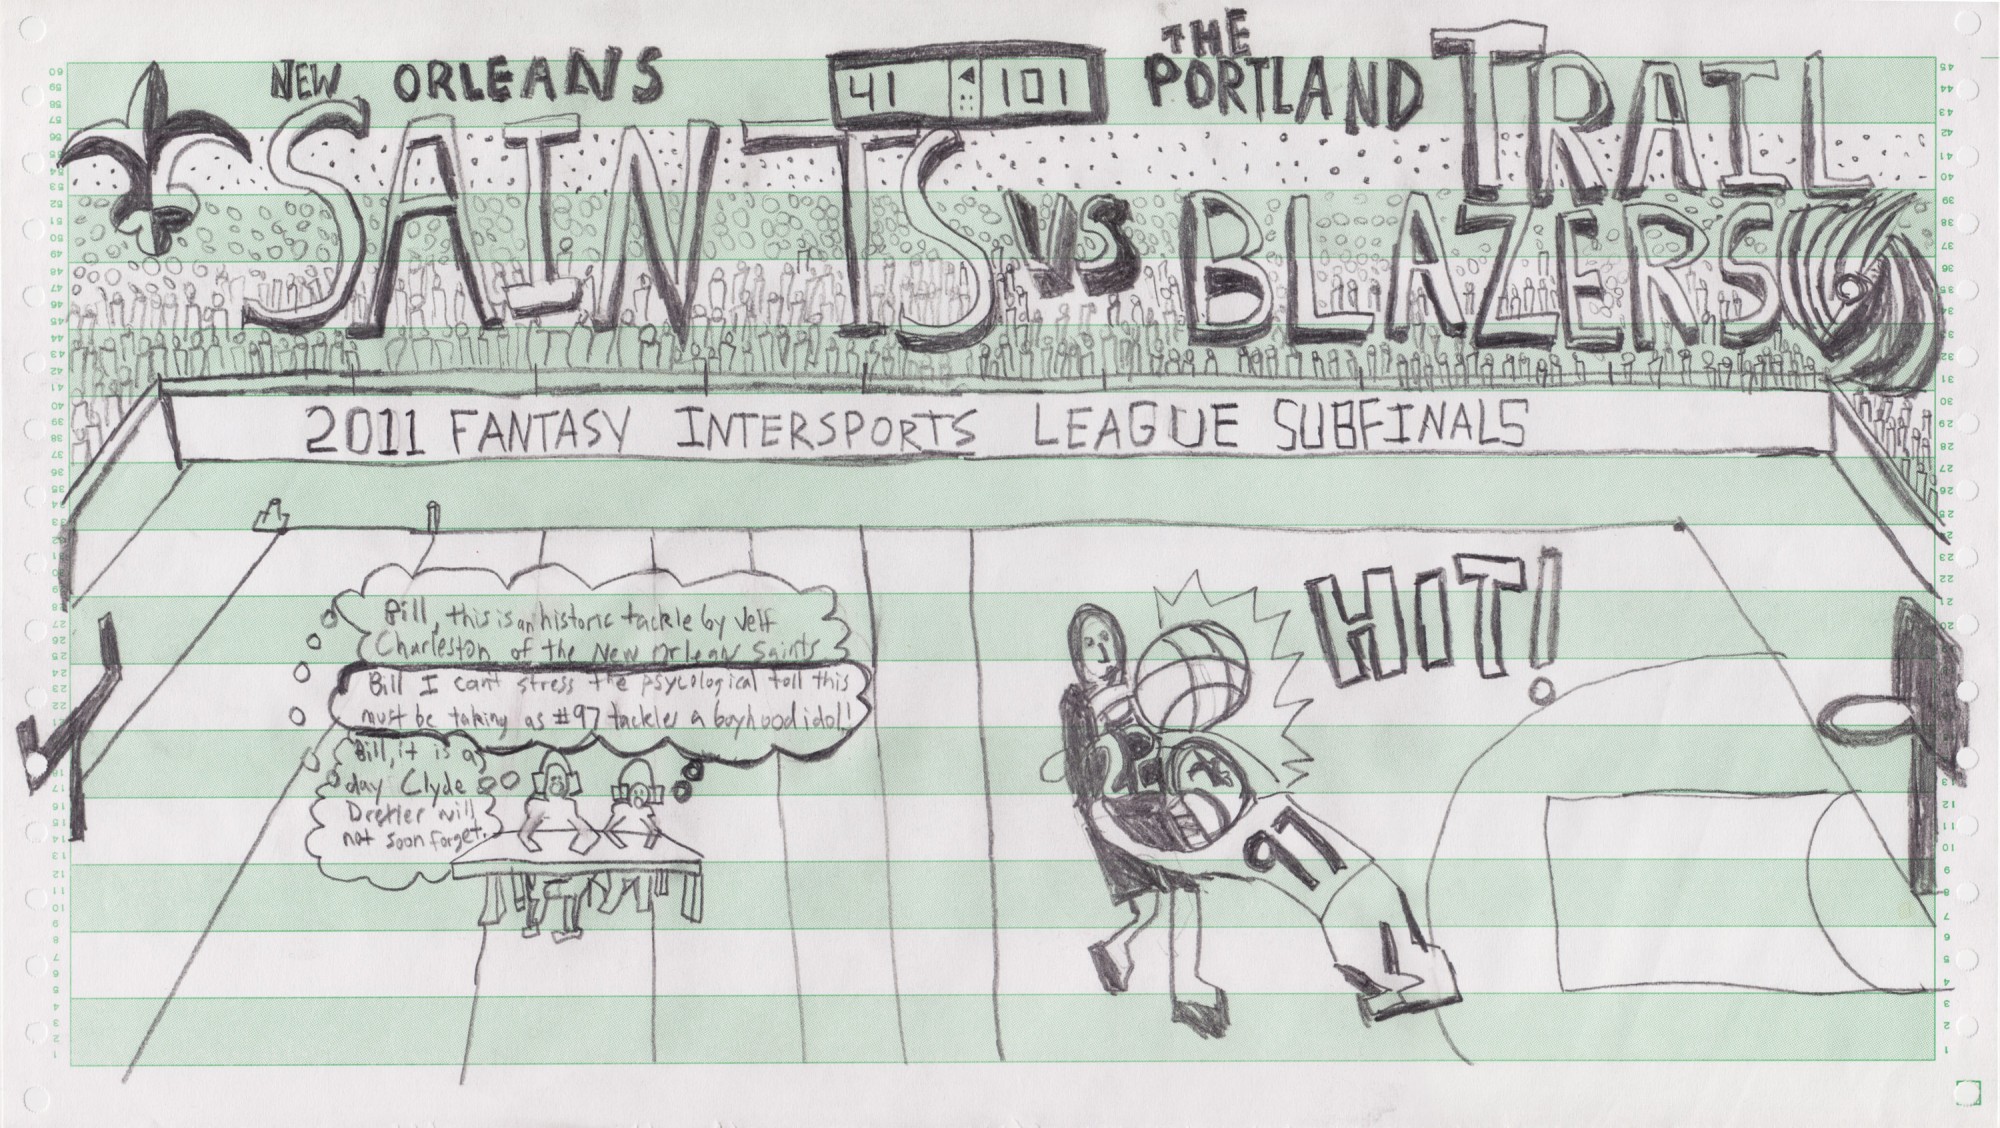 NEW ORLEANS
SAINTS
41 101
VS
THE
PORTLAND TRAIL
BLAZERS
2011 FANTASY INTERSPORTS LEAGUE SUBFINALS
HIT!
Bill, this is an historic tackle by Jeff
Charleston of the New Orleans Saints
Bill I cant stress the psycological toll this
must be taking as #97 tackles a boyhood idol!
Bill, it is a
day Clyde
Drexler will
not soon forget.
97